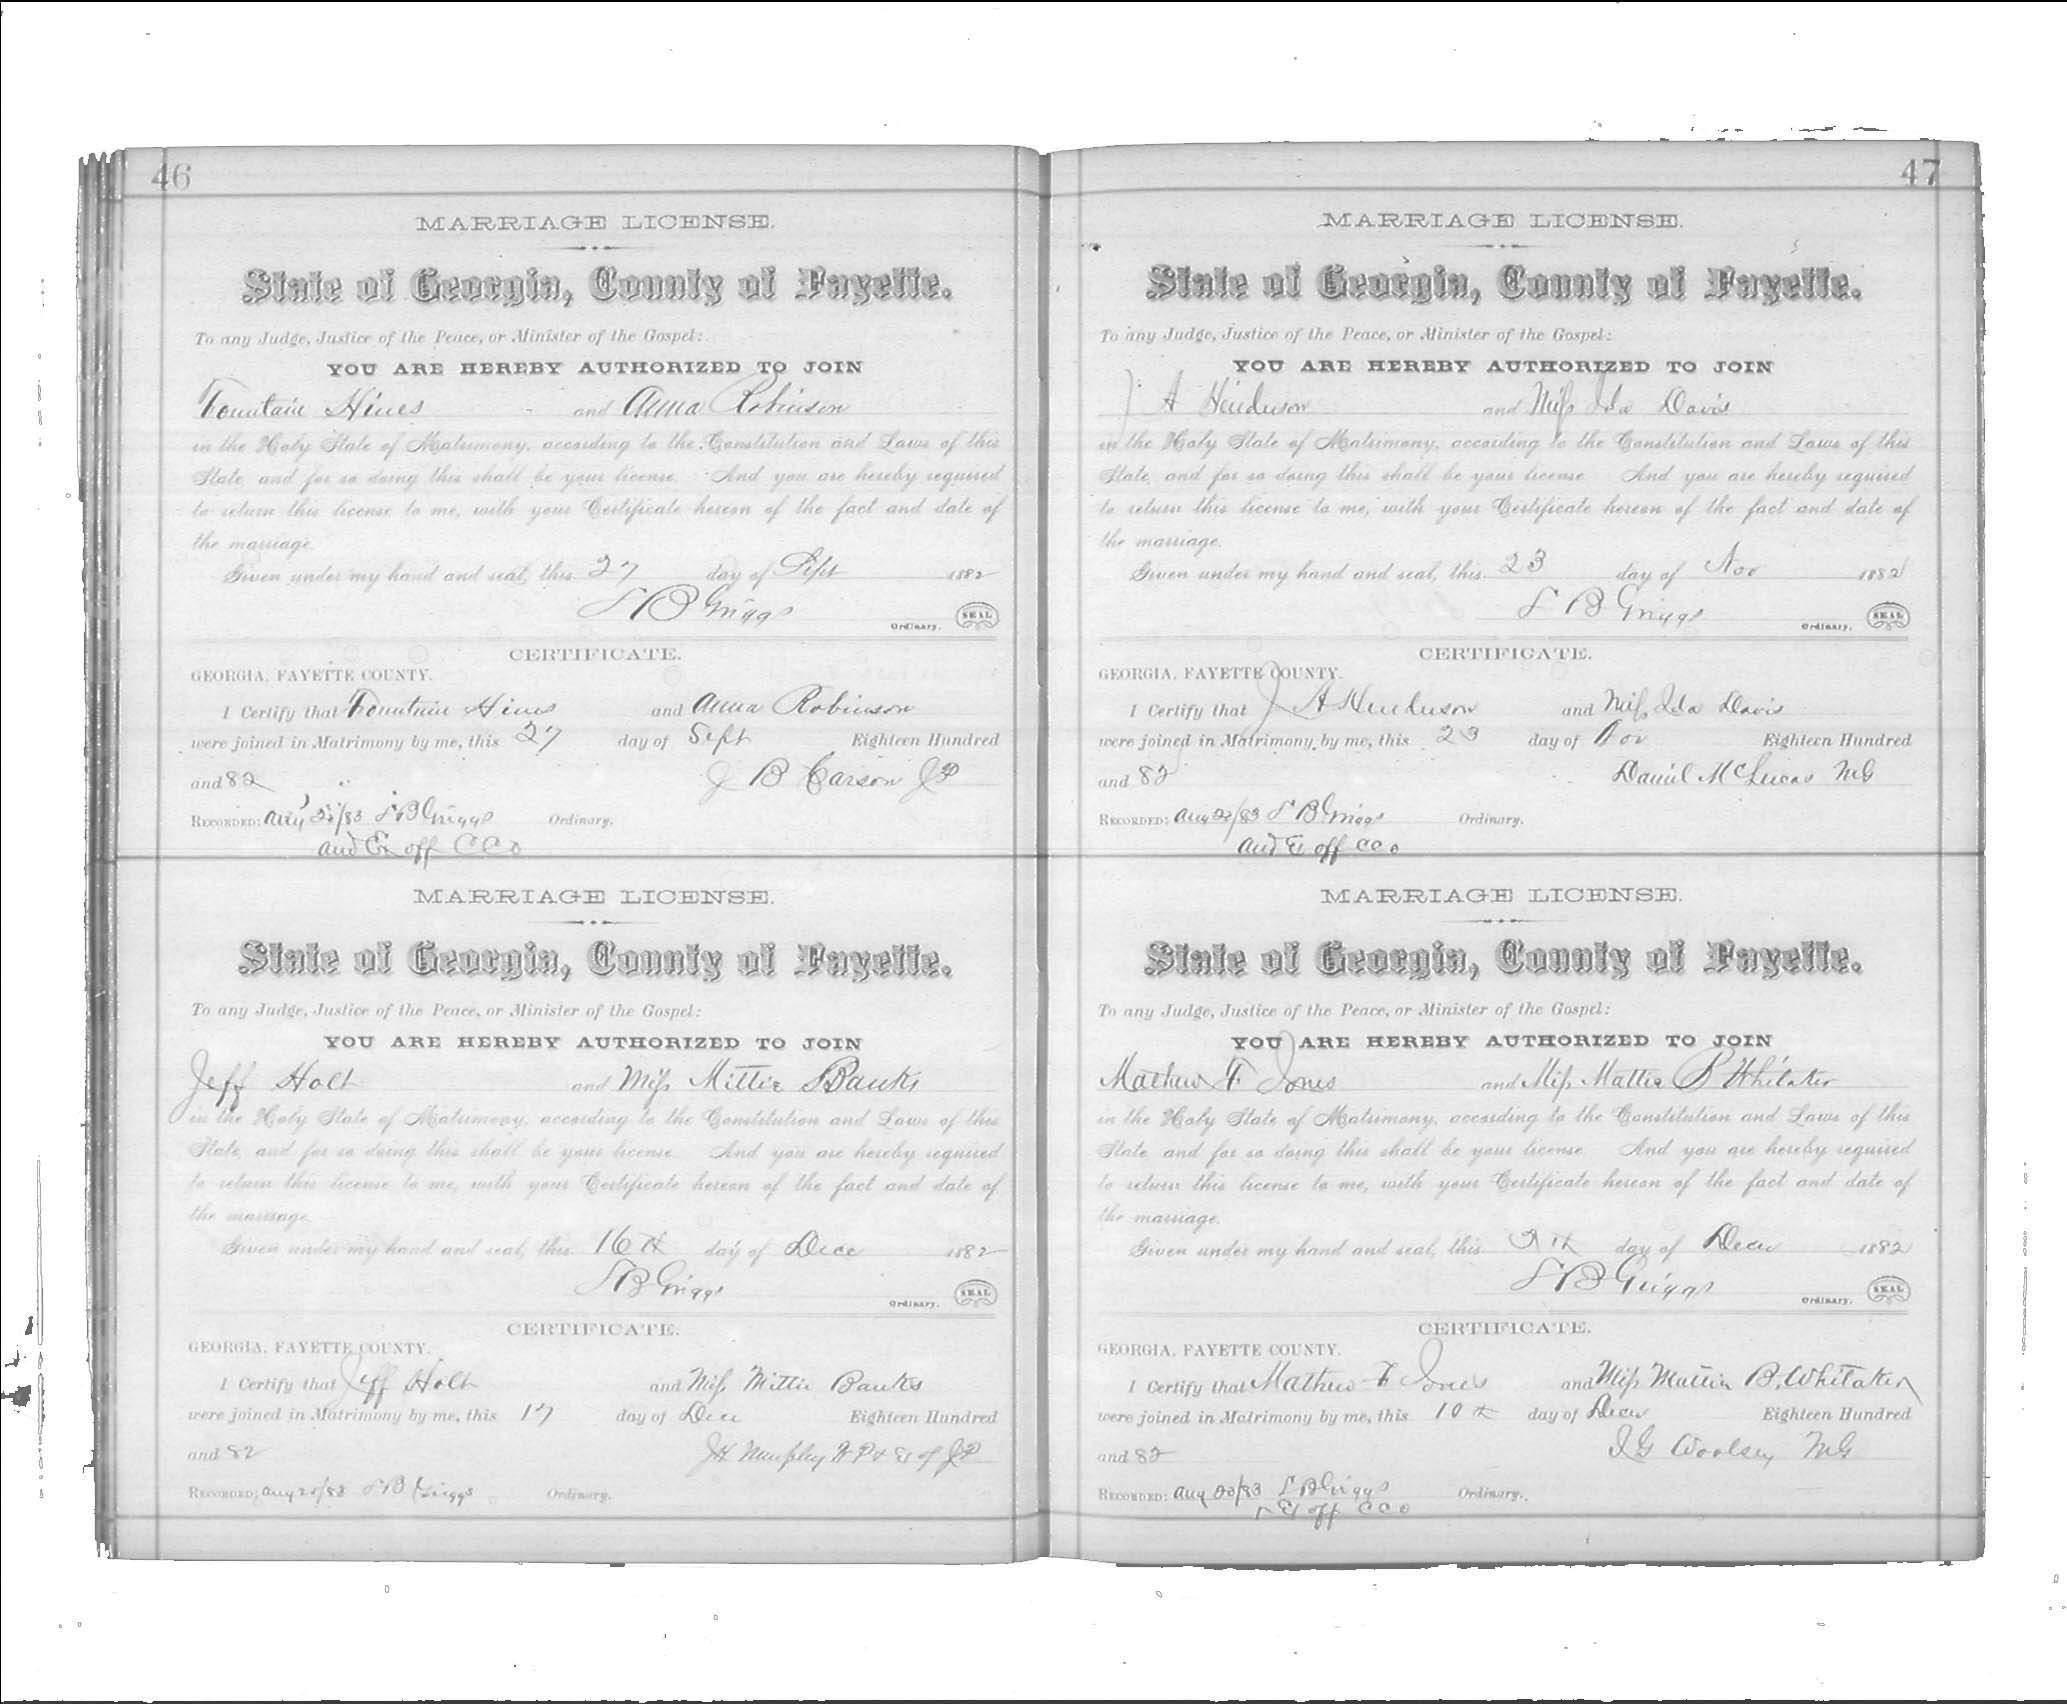 46
MARRIAGE LICENSE.
State of Georgia, County of Fayette.
To any Judge, Justice of the Peace, or Minister of the Gospel:
YOU ARE HEREBY AUTHORIZED TO JOIN
Fountain Hines and Anna Robinson
in the Holy State of Matrimony, according to the Constitution and Laws of this
State, and for so doing this shall be your license. And you are hereby required
to return this license to me, with your Certificate hereon of the fact and date of
the marriage.
Given under my hand and seal, this 27 day of Sept 1882
S B Griggs
Ordinary. SEAL
CERTIFICATE.
GEORGIA, FAYETTE COUNTY.
I Certify that Fountain Hines and Anna Robinson
were joined in Matrimony by me, this 27 day of Sept Eighteen Hundred
and 82 J B Carson JP
RECORDED: Aug /83 S B Griggs Ordinary.
and Ex off CCO
MARRIAGE LICENSE.
State of Georgia, County of Fayette.
To any Judge, Justice of the Peace, or Minister of the Gospel:
YOU ARE HEREBY AUTHORIZED TO JOIN
Jeff Holt and Miss Mittie Banks
in the Holy State of Matrimony, according to the Constitution and Laws of this
State, and for so doing this shall be your license. And you are hereby required
to return this license to me, with your Certificate hereon of the fact and date of
the marriage.
Given under my hand and seal, this 16th day of Dec 1882
S B Griggs
Ordinary. SEAL
CERTIFICATE.
GEORGIA, FAYETTE COUNTY.
I Certify that Jeff Holt and Miss Mittie Banks
were joined in Matrimony by me, this 17 day of Dec Eighteen Hundred
and 82 Murphey N P & Ex of JP
RECORDED: Aug 20/83 S B Griggs Ordinary.
47
MARRIAGE LICENSE.
State of Georgia, County of Fayette.
To any Judge, Justice of the Peace, or Minister of the Gospel:
YOU ARE HEREBY AUTHORIZED TO JOIN
J A Henderson and Miss Ida Davis
in the Holy State of Matrimony, according to the Constitution and Laws of this
State, and for so doing this shall be your license. And you are hereby required
to return this license to me, with your Certificate hereon of the fact and date of
the marriage.
Given under my hand and seal, this 23 day of Nov 1882
S B Griggs
Ordinary. SEAL
CERTIFICATE.
GEORGIA, FAYETTE COUNTY.
I Certify that J A Henderson and Miss Ida Davis
were joined in Matrimony by me, this 23 day of Nov Eighteen Hundred
and 82 Daniel McLucas MG
RECORDED: Aug 20/83 S B Griggs Ordinary.
and Ex off CCO
MARRIAGE LICENSE.
State of Georgia, County of Fayette.
To any Judge, Justice of the Peace, or Minister of the Gospel:
YOU ARE HEREBY AUTHORIZED TO JOIN
Mathew F Jones and Miss Mattie B Whitaker
in the Holy State of Matrimony, according to the Constitution and Laws of this
State, and for so doing this shall be your license. And you are hereby required
to return this license to me, with your Certificate hereon of the fact and date of
the marriage.
Given under my hand and seal, this 9th day of Decr 1882
S B Griggs
Ordinary. SEAL
CERTIFICATE.
GEORGIA, FAYETTE COUNTY.
I Certify that Mathew F Jones and Miss Mattie B. Whitaker
were joined in Matrimony by me, this 10th day of Decr Eighteen Hundred
and 82 Woolsey MG
RECORDED: Aug 20/83 S B Griggs Ordinary.
& Ex off CCO